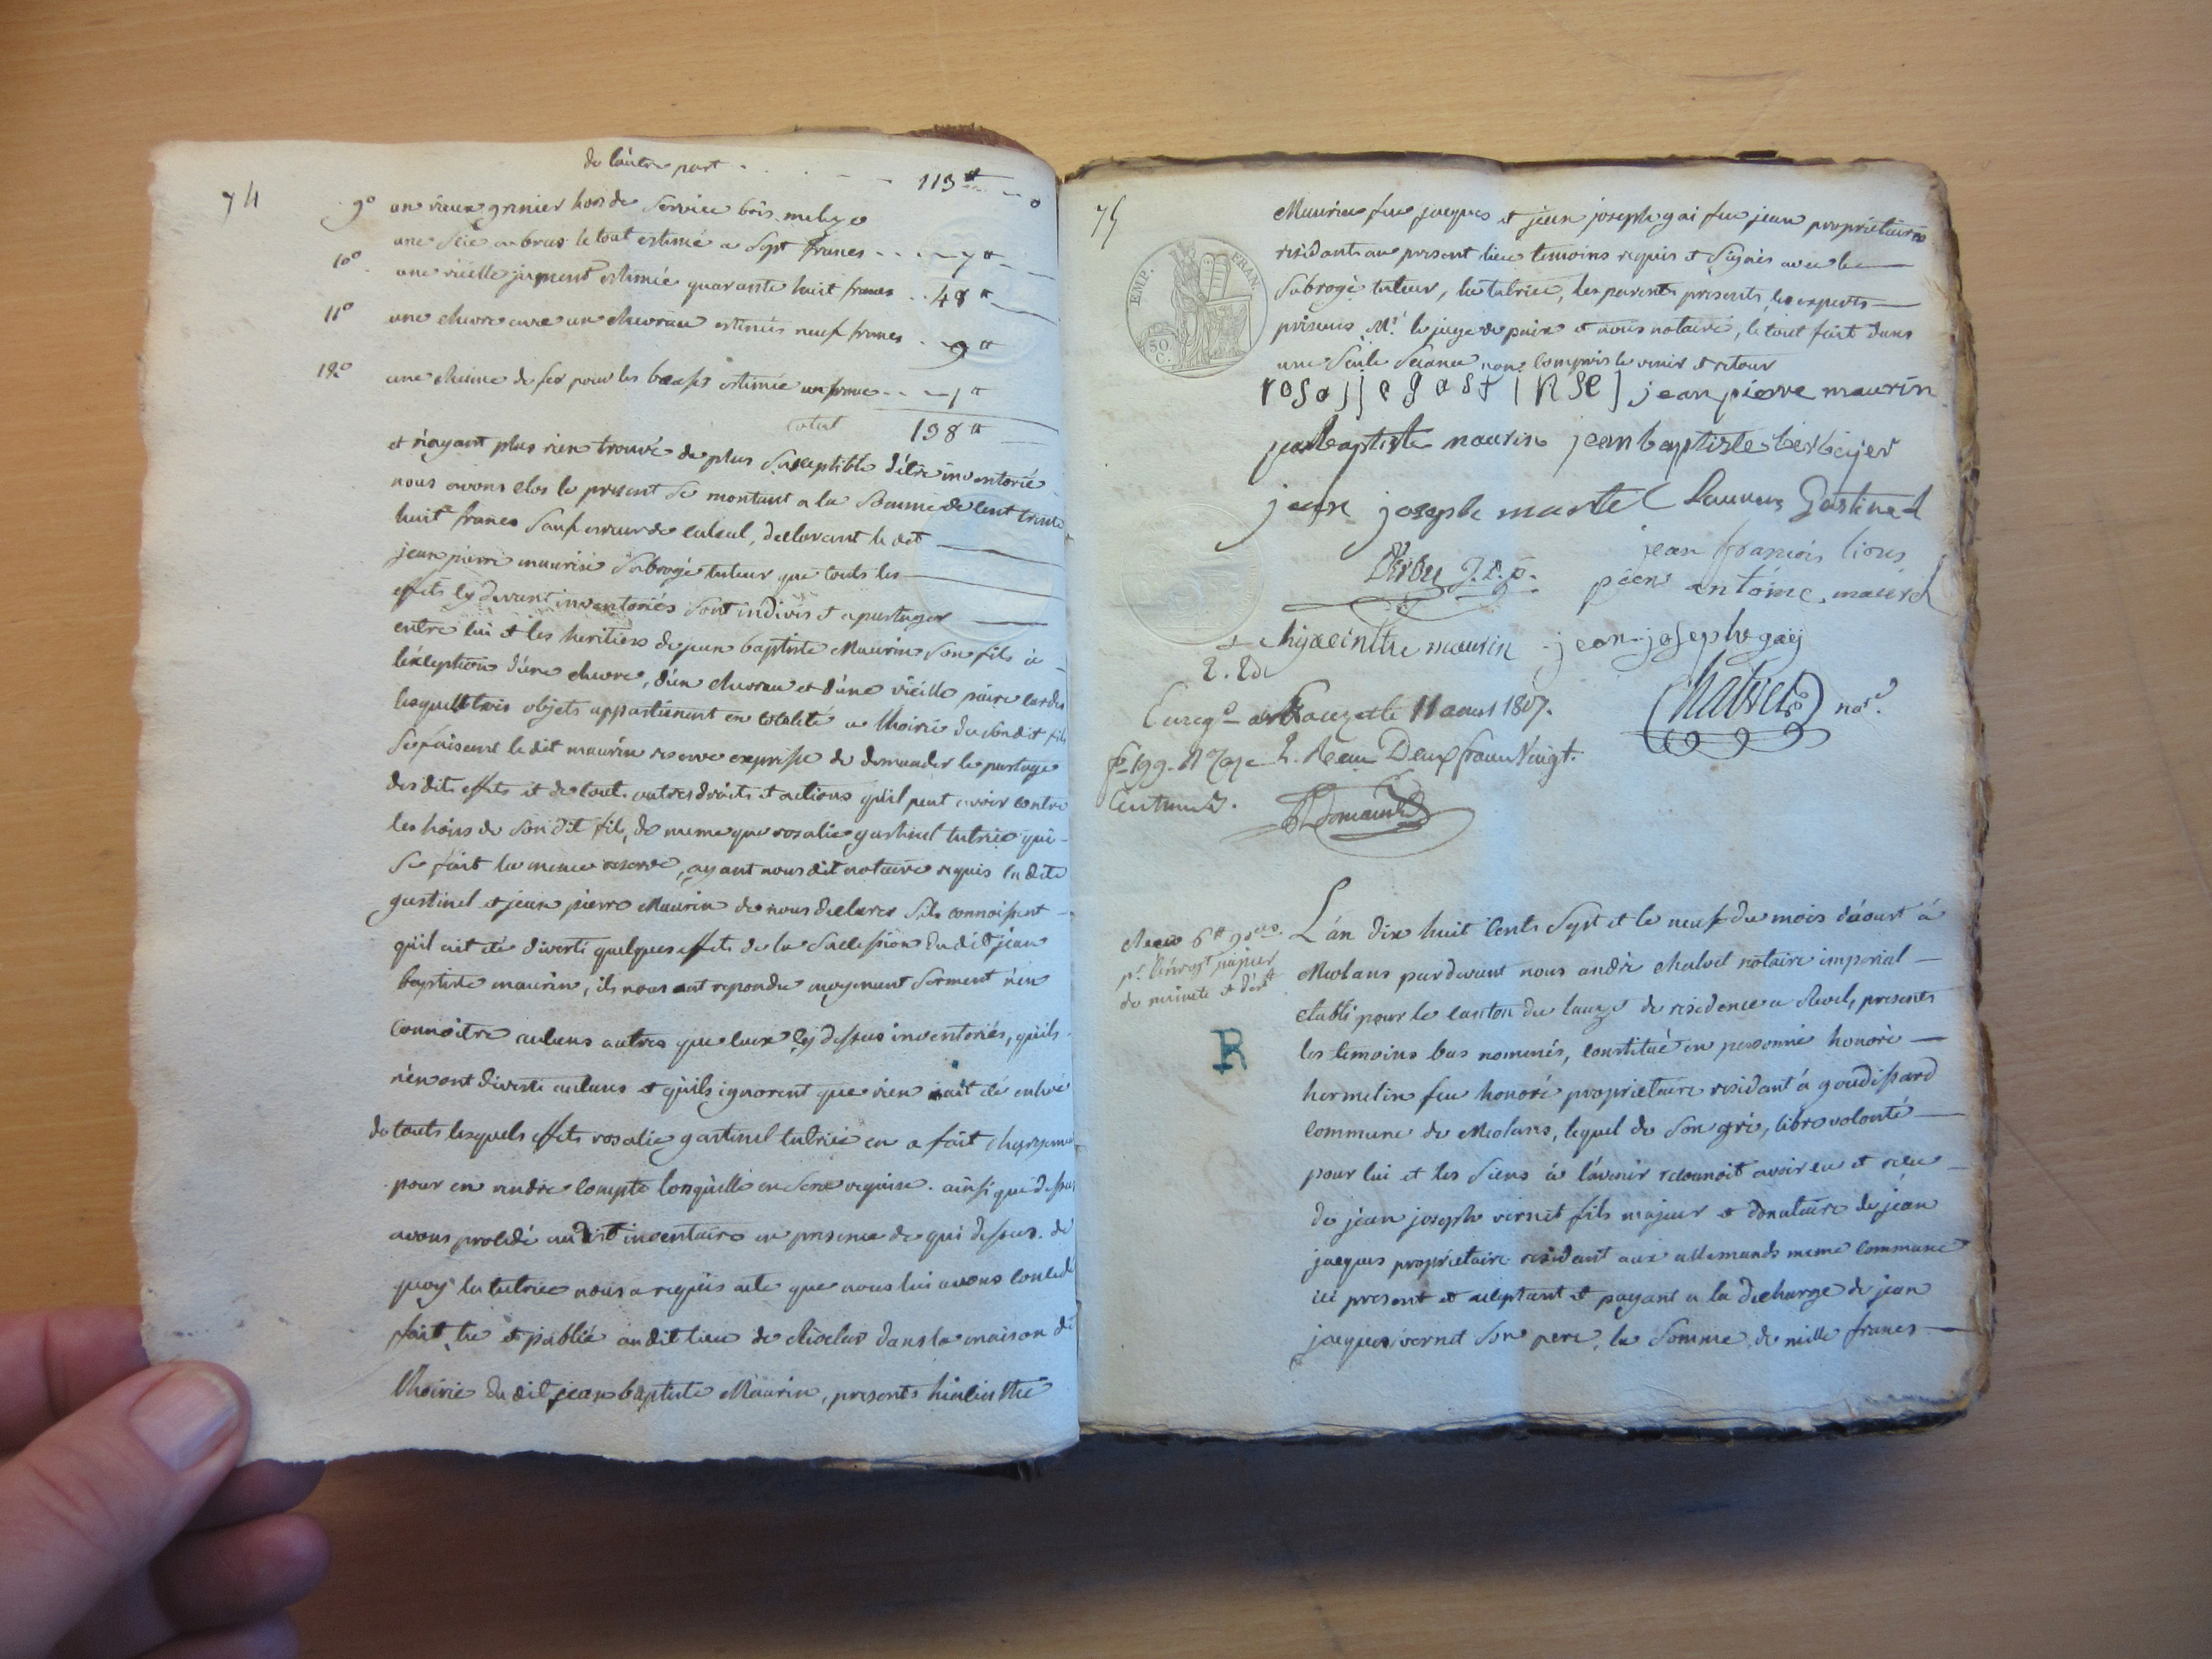 74
de l'autre part . . . 113 ₶ -- 0
9° un vieux grenier hors de service bois meleze
une scie a bras le tout estimé a sept francs . . . 7 ₶
10° une vieille jument estimée quarante huit francs . . 48 ₶
11° une chevre avec un chevrau estimés neuf francs . 9 ₶
12° une cheine de fer pour les bœufs estimée un franc . . 1 ₶
total 198 ₶
et n'ayant plus rien trouvé de plus susceptible d'être inventorié
nous avons clos le present se montant a la somme de cent trente
huit francs sauf erreur de calcul, declarant le dit
jean pierre maurin subrogé tuteur que touts les
effets cy devant inventoriés sont indivis et a partager
entre lui et les heritiers de jean baptiste Maurin son fils à
l'exeption d'une chevre, d'un chevrau et d'une vieille paire cardes
lesquells trois objets appartienent en totalité a l'hoirie du sondit fils
se faisant le dit maurin reserve expresse de demander le partage
des dits effets et de tout autres droits et actions qu'il peut avoir contre
les hoirs de son dit fils, de meme que rosalie gastinel tutrice qui
se fait la meme reserve, ayant nous dit notaire requis la dite
gastinel et jean pierre Maurin de nous declarer s'ils connoissent
qu'il ait été diverti quelques effets de la succession du dit jean
baptiste maurin, ils nous ont repondu moyenant serment n'en
connoitre aucuns autres que ceux cy dessus inventoriés, qu'ils
n'en ont diverti aucuns et qu'ils ignorent que rien n'ait été enlevé
de touts lesquels effets rosalie gastinel tutrice en a fait chargement
pour en rendre compte lorsqu'elle en sera requise. ainsi que dessus
avons procedé au dit inventaire en presence de qui dessus. de
quoy la tutrice nous a requis acte que nous lui avons concedé
fait, lu et publié au dit lieu de dans la maison de
l'hoirie du dit jean baptiste Maurin, presents hiacinthe
75
Maurin feu jacques et jean joseph gai feu jean proprietaires
residants au present lieu temoins requis et signés avec le
subrogé tuteur, la tutrice, les parents presents les experts
presents Mr. le juge de paix et nous notaire, le tout fait dans
une seule seance non compris le venir et retour
EMP. FRAN.
50 C.
rosalie gastinel jean pierre maurin
jean baptiste maurin jean baptiste
jean joseph martel Laurens Gastinel
J. D. P. jean françois lions
jean antoine
hyacinthe maurin jean joseph gaÿ
Chalvet nore.
Enregé au Lauzet le 11 aout 1807.
fo 199. Reçu Deux francs Vingt
Centimes.
Reçu 6 ₶
papier
de minute et
R
L'an dix huit cents sept et le neuf du mois d'aoust à
Meolans pardevant nous andré chalvet notaire imperial
etabli pour le canton du lauzet de residence a Revel, presents
les temoins bas nommés, constitué en personne honoré
hermelin feu honoré proprietaire residant à goudissard
commune de Meolans, lequel de son gré, libre volonté
pour lui et les siens à l'avenir reconnoit avoir eu et reçu
de jean joseph vernet fils majeur et donataire de jean
jacques proprietaire residant aux allemands meme commune
ici present et aceptant et payant a la decharge de jean
jacques vernet son pere, la somme de mille francs